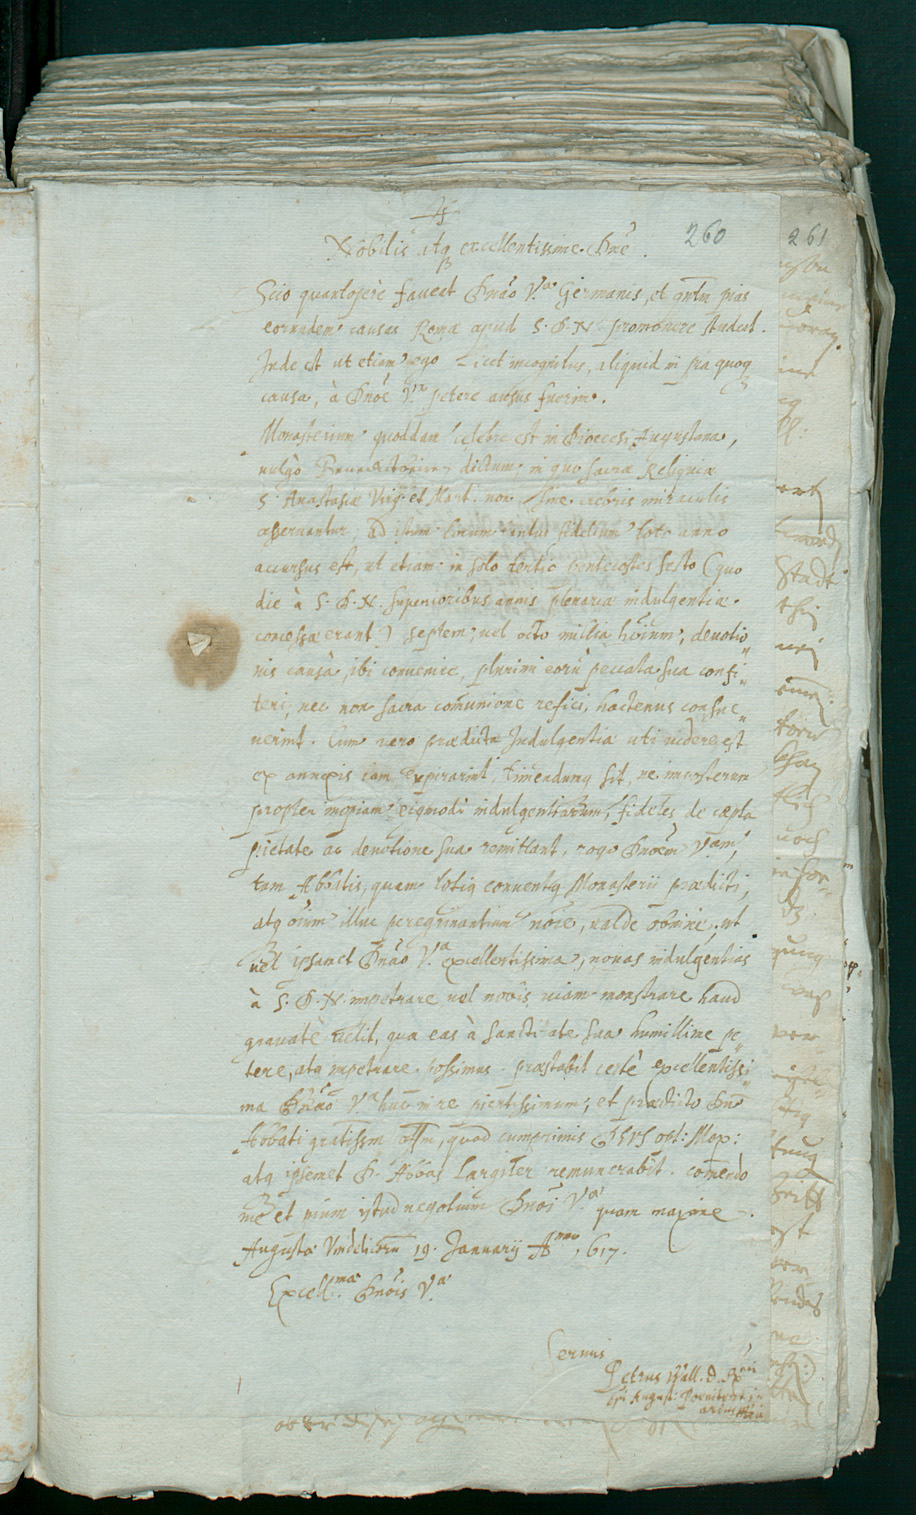 260
261
Nobilis atq. excellentissime Dñe.
Scio quantoperè faveat Dnâo V.ᵃ Germanis, et pias
eorundem causas Romæ apud S. D. N. promovere studeat.
Inde est ut etiam ego Licet incognitus, aliquid in pia quoq
causa, à Dnôe V.ᵃ petere ausus fuerim.
Monasterium quoddam celebre est in Dioecesi Augustana,
vulgò dictum, in quo sacræ Reliquiæ
S. Anastasiæ Virg. et Mart. non sine crebris miraculis
asservantur; ad istum locum fidelium toto anno
accursus est, ut etiam in solo tertio pentecostes festo (quo
die à S. D. N. superioribus annis plenariæ indulgentiæ
concessæ erant) septem, vel octo millia hôium, devotio
nis causâ, ibi convenire, plurimi eorū peccata sua confi
teri, nec non sacra comunione refici, hactenus consue
verint. Cum vero prædictæ Indulgentiæ uti videre est
ex annexis iam expirarint, timendumq sit, ne in posterum
propter inopiam eiqmodi indulgentiarum, fideles de cæpta
pietate ac devotione sua remittant, rogo Dnôem V.am,
tam Abbatis, quam totiq conventq Monasterii prædicti,
atq ôium illuc peregrinantium nôie, valde obnixe, ut
vel ipsamet Dnâo V.ᵃ excellentissima, novas indulgentias
à S. D. N. impetrare, vel nobis viam monstrare haud
gravatè velit, qua eas à Sanctitate sua humillime pe
tere, atq impetrare possimus. præstabit certè excellentissi
ma Dnâo V.ᵃ hac in re pientissimum, et prædicto Dnô
Abbati gratissm offm, quod cumprimis DEVS opt: Max:
atq ipsemet D. Abbas Largiter remunerabit. comendo
me et pium istud negotium Dnôi V.ᵃ quam maxime.
Augustæ Vindelicorū 19. Januarij Aⁿⁿᵒ, 617.
Excell.ᵐᵃᵉ Dnôis V.ᵃᵉ
Servus
Petrus Wall. D. R
Epi August: Poenitenti
arius